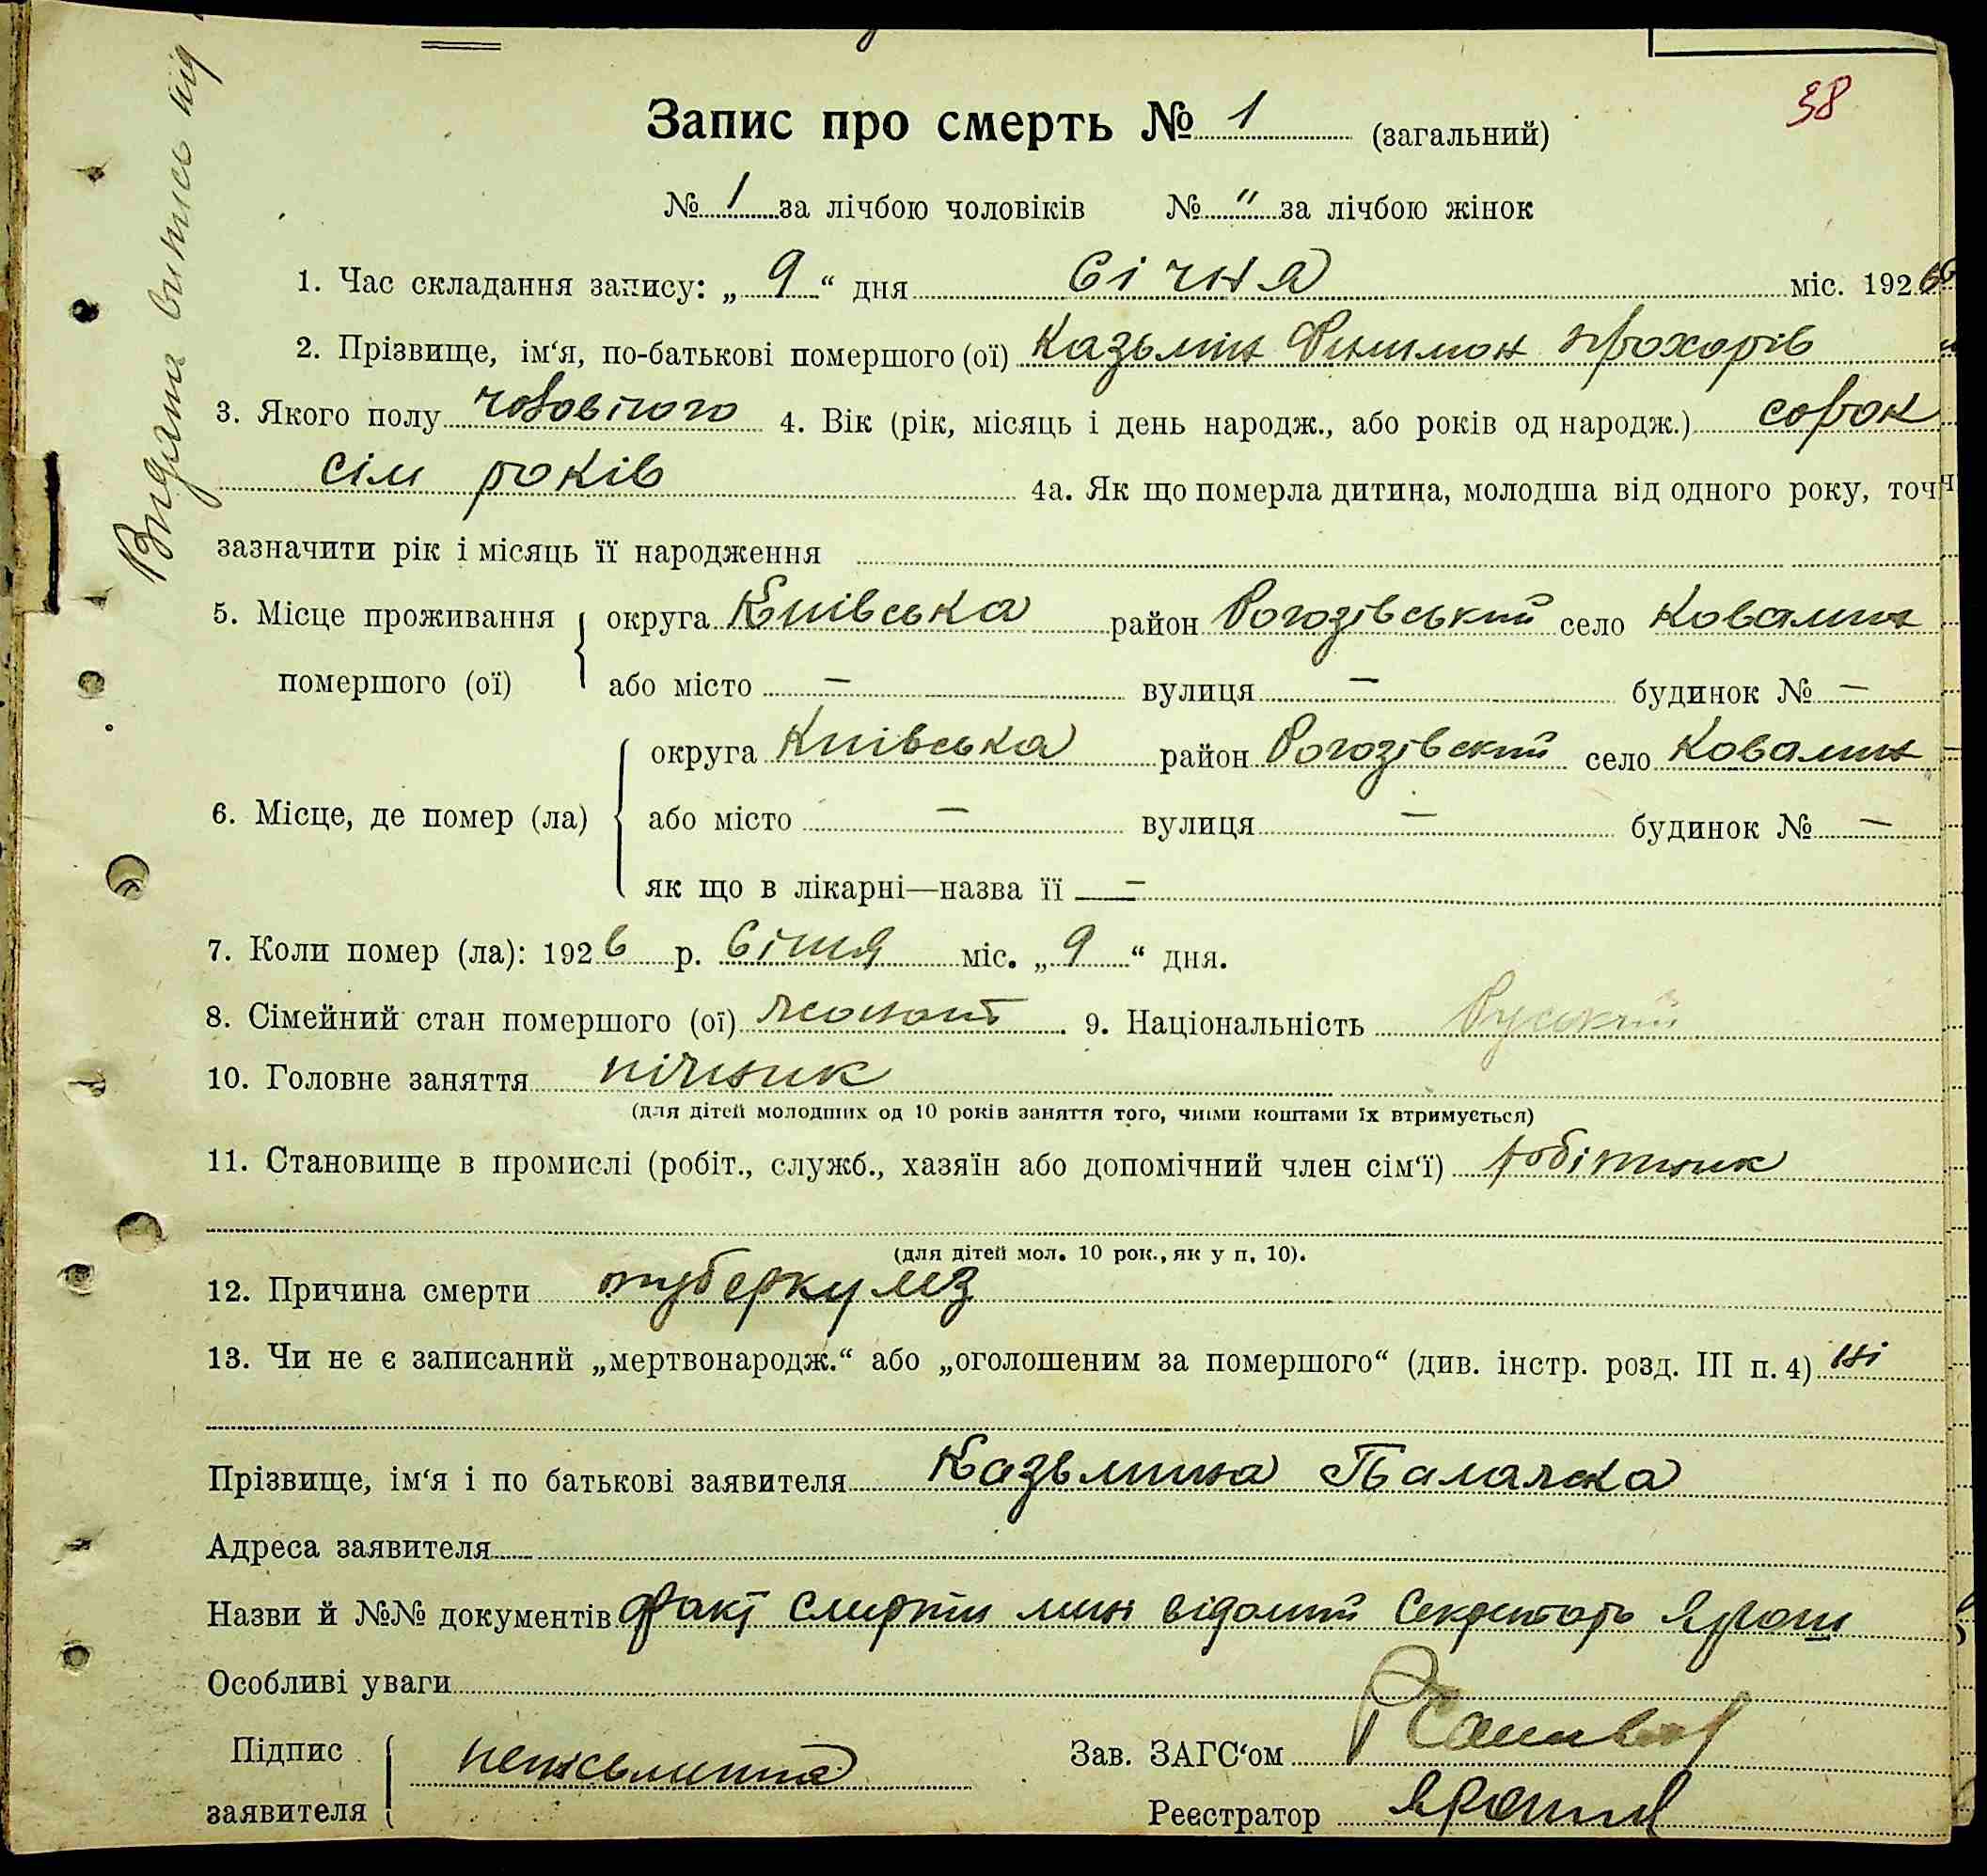 38
Запис про смерть № 1 (загальний)
№ 1 за лічбою чоловіків № " за лічбою жінок
1. Час складання запису: „ 9 “ дня Січня міс. 1926
2. Прізвище, ім‘я, по-батькові помершого (ої) Казьмин Филимон Прохорів
3. Якого полу чоловічого 4. Вік (рік, місяць і день народж., або років од народж.) сорок
сім років 4а. Як що померла дитина, молодша від одного року, точн
зазначити рік і місяць її народження
5. Місце проживання помершого (ої) округа Київська район Рогозівський село Ковалин
або місто — вулиця — будинок № —
6. Місце, де помер (ла) округа Київська район Рогозівский село Ковалин
або місто — вулиця — будинок № —
як що в лікарні—назва її —
7. Коли помер (ла): 1926 р. Січня міс. „ 9 “ дня.
8. Сімейний стан помершого (ої) жонат 9. Національність Руський
10. Головне заняття пічник
(для дітей молодших од 10 років заняття того, чиїми коштами їх втримується)
11. Становище в промислі (робіт., служб., хазяїн або допомічний член сім‘ї) робітник
(для дітей мол. 10 рок., як у п. 10).
12. Причина смерти туберкульз
13. Чи не є записаний „мертвонародж.“ або „оголошеним за помершого“ (див. інстр. розд. III п. 4) ні
Прізвище, ім‘я і по батькові заявителя Казьмина Палажка
Адреса заявителя
Назви й №№ документів факт смерти мині відомий Секретарь Ярош
Особливі уваги
Підпис заявителя неписьменна
Зав. ЗАГС‘ом
Реєстратор Ярош
Видана випись під